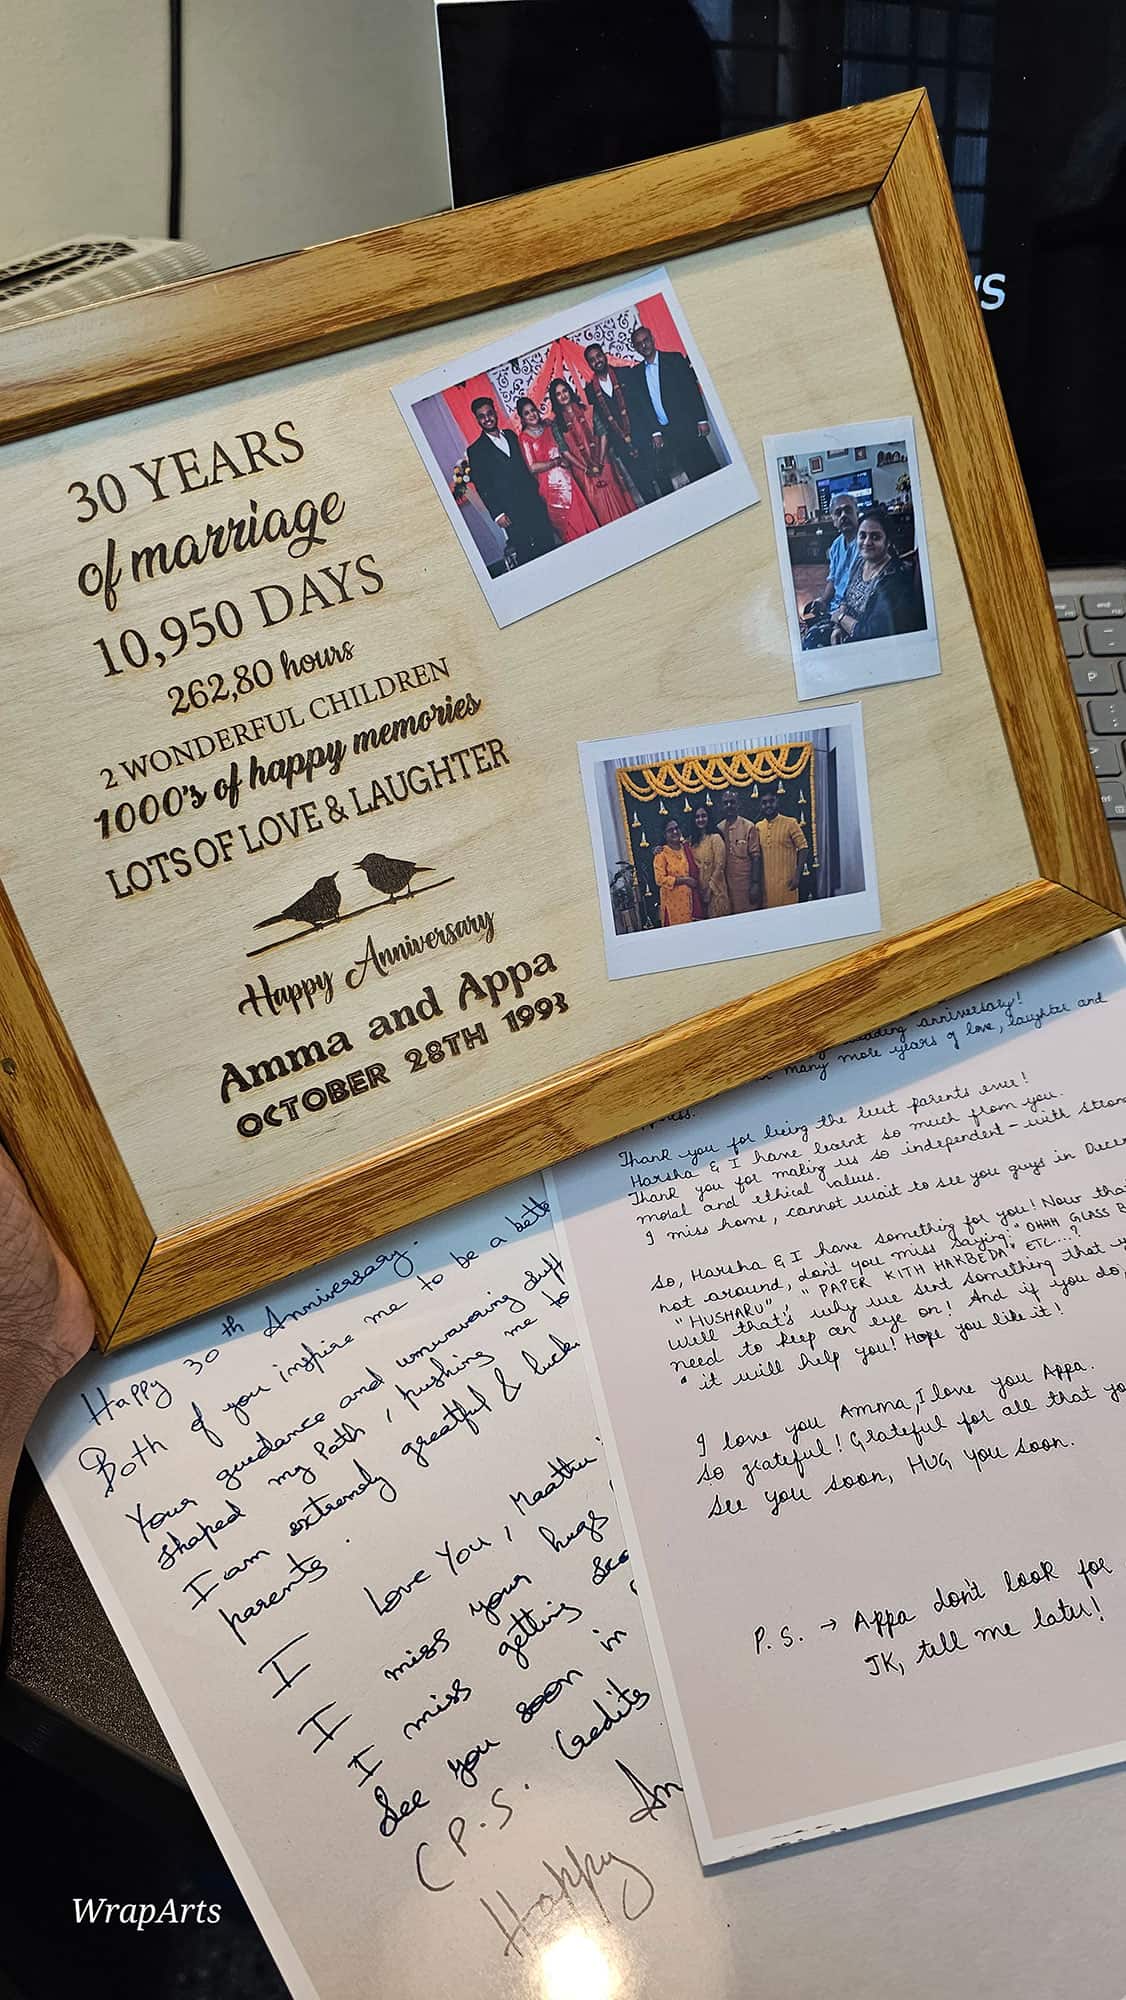 30 YEARS
of marriage
10,950 DAYS
262,80 hours
2 WONDERFUL CHILDREN
1000's of happy memories
LOTS OF LOVE & LAUGHTER
Happy Anniversary
Amma and Appa
OCTOBER 28TH 1993
VS
anniversary!
many more years of love, laughter and
Thank you for being the best parents ever!
Harsha & I have learnt so much from you.
Thank you for making us so independent - with strong
moral and ethical values.
I miss home, cannot wait to see you guys in Decem
So, Harsha & I have something for you! Now that
not around, don't you miss saying: "OHHH GLASS B
"HUSHARU", "PAPER KITH HAKBEDA", ETC...?
Well that's why we sent something that y
need to keep an eye on! And if you do,
it will help you! Hope you like it!
I love you Amma, I love you Appa.
So grateful! Grateful for all that you
See you soon, HUG you soon.
P.S. → Appa don't look for
JK, tell me later!
Happy 30th Anniversary.
Both of you inspire me to be a bette
Your guidance and unwavering
shaped my Path, pushing me to
I am extremely greatful & lucky
parents.
I Love You,
I miss your hugs
I miss getting
See you soon in
(P.S. Credits
Happy
WrapArts